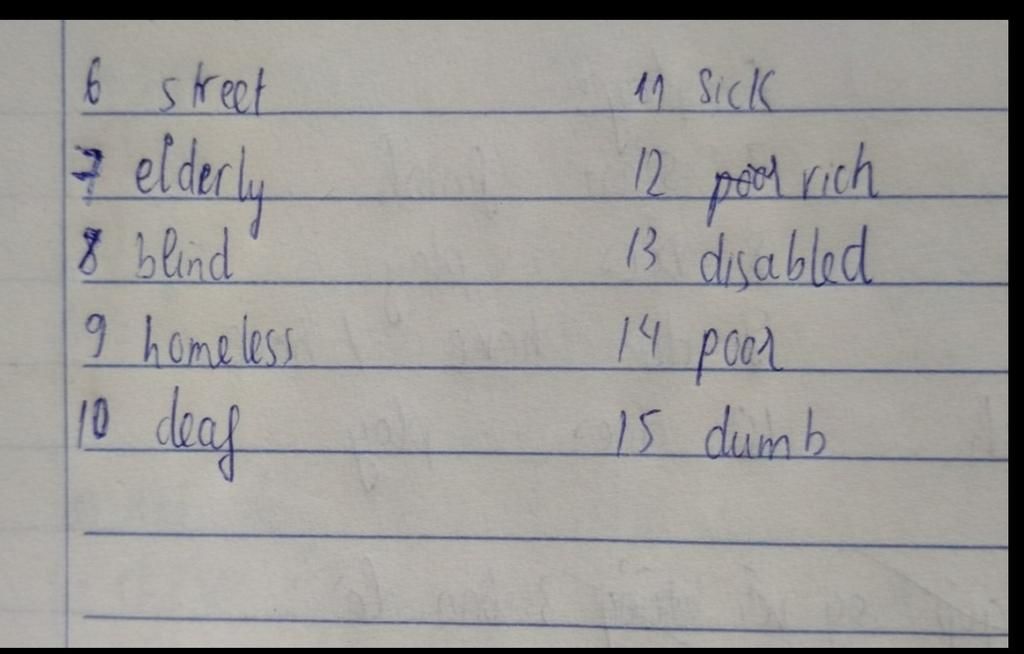 6 street
7 elderly
8 blind
9 homeless
10 deaf
11 sick
12 poor rich
13 disabled
14 poor
15 dumb